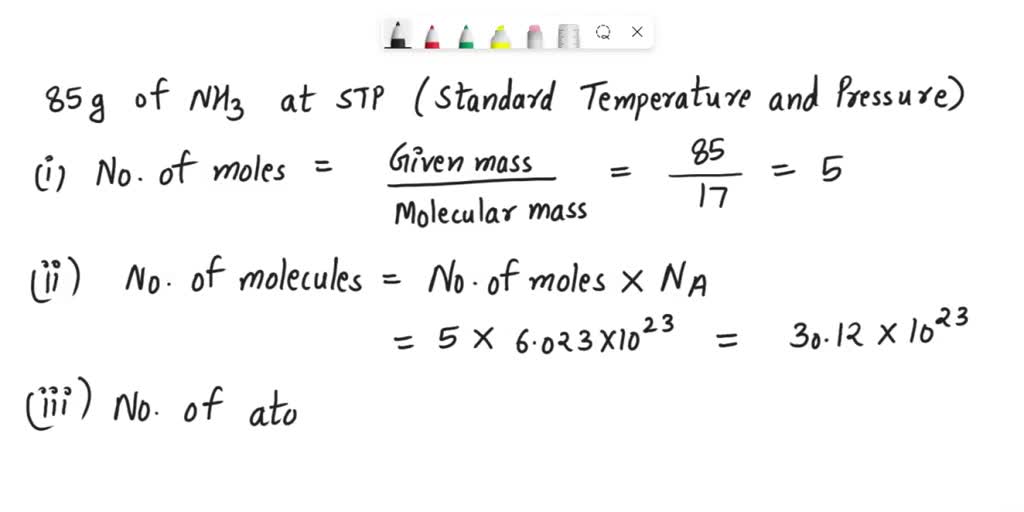 85g of NH3 at STP (Standard Temperature and Pressure)
(i) No. of moles = Given mass / Molecular mass = 85 / 17 = 5
(ii) No. of molecules = No. of moles × NA
= 5 × 6.023×10^23 = 30.12 × 10^23
(iii) No. of ato